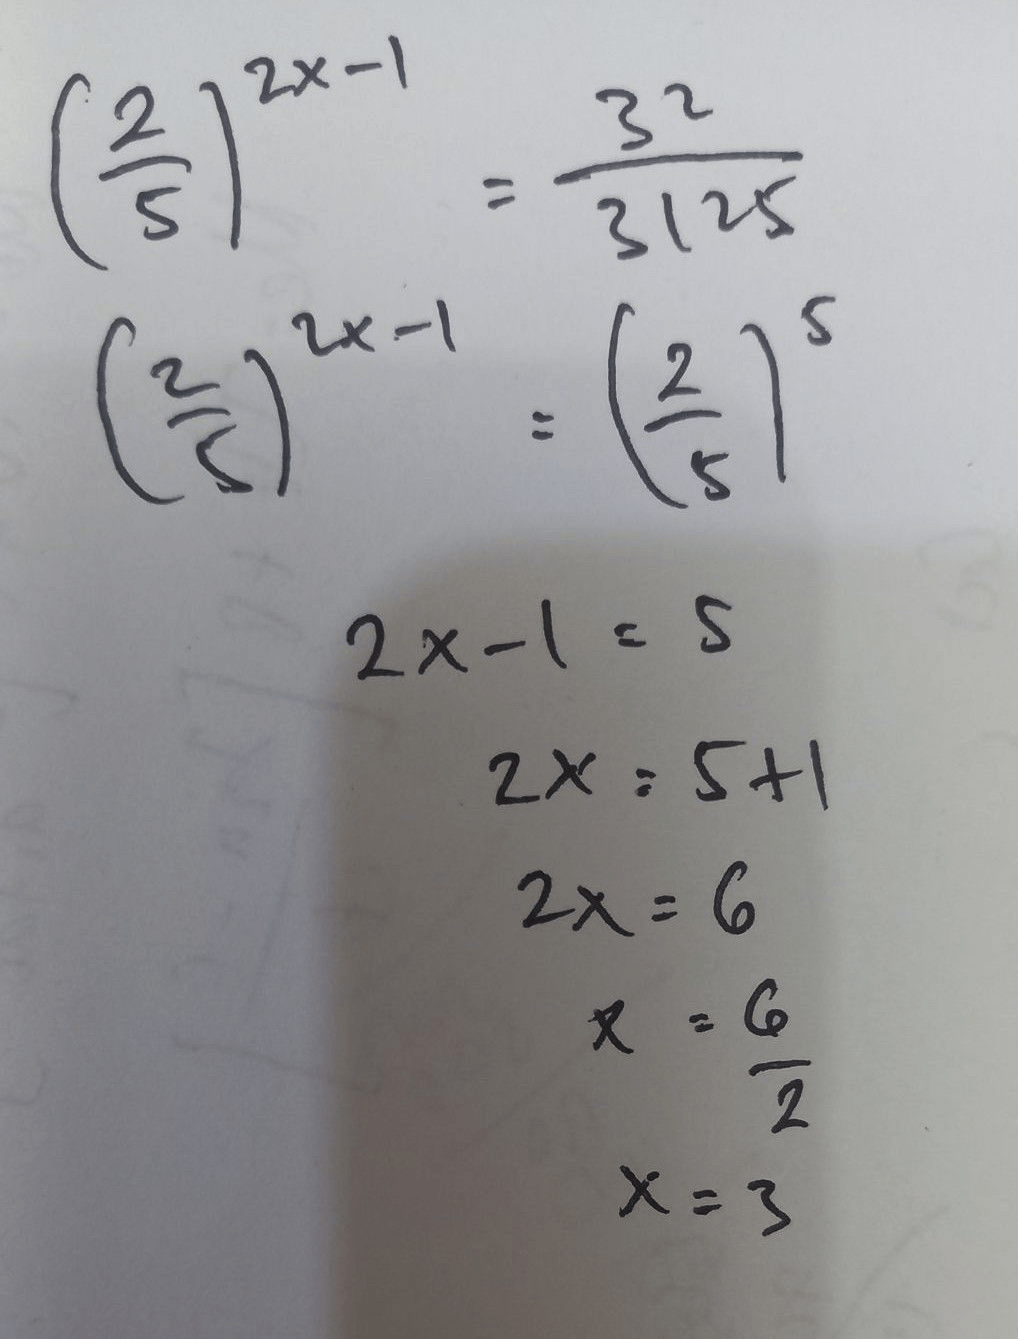 (2/5)^(2x-1) = 32/3125
(2/5)^(2x-1) = (2/5)^5
2x-1 = 5
2x = 5+1
2x = 6
x = 6/2
x = 3